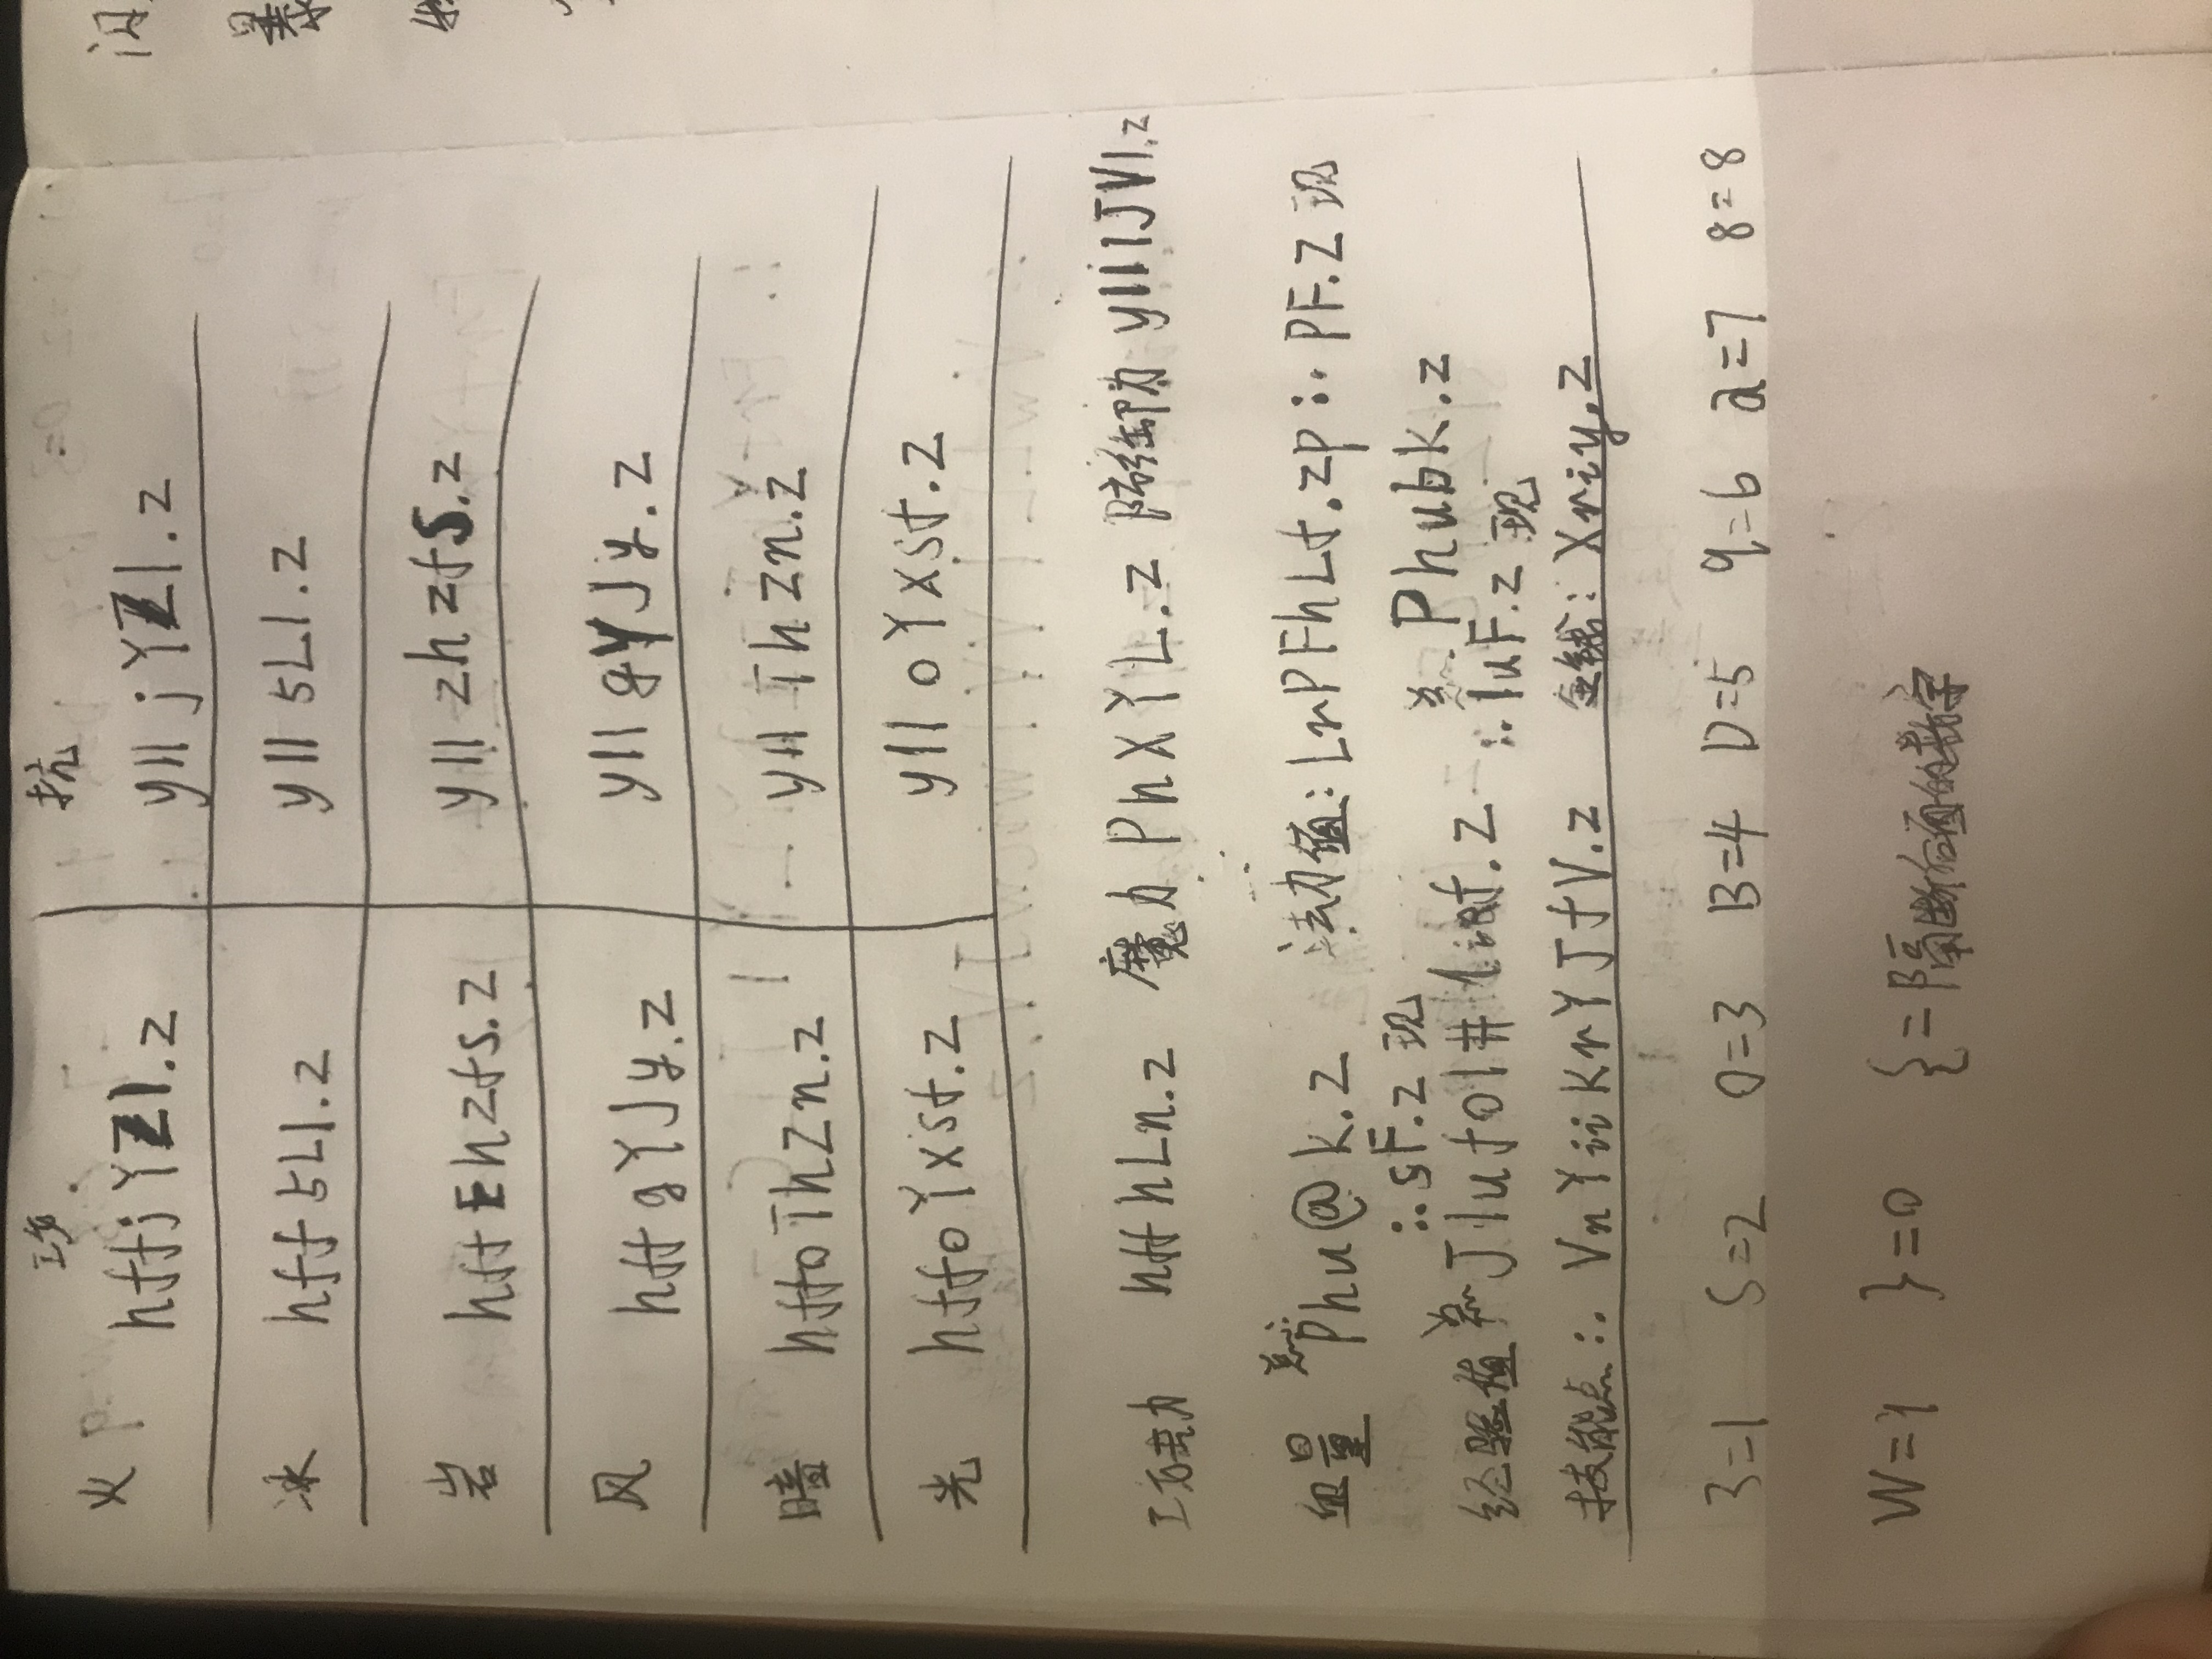 闪
暴
攻 抗
火 hffjYZl.z ylljYZl.z
冰 hff5Ll.z yll5Ll.z
岩 hffEhzfs.z yllzhzfs.z
风 hffgYJy.z yllgYJy.z
暗 hffoThZn.z yllThzn.z
光 hffoYxst.z ylloYxst.z
攻击力 hffhLn.z 魔力 PhXYL.z 防御为 ylliJVl.z
血量 总:Phu@k.z 法力值:LnPFhLt.zp:·PF.Z现
:·sF.z现 总·Phubk.z
经验值 总Jlufol#liat.z :·luF.z现
技能点:·VnYiiKrYJfV.z 金钱:Xriy.z
3=1 S=2 0=3 B=4 D=5 q=6 a=7 8=8
W=9 }=0 {=隔断后面的数字